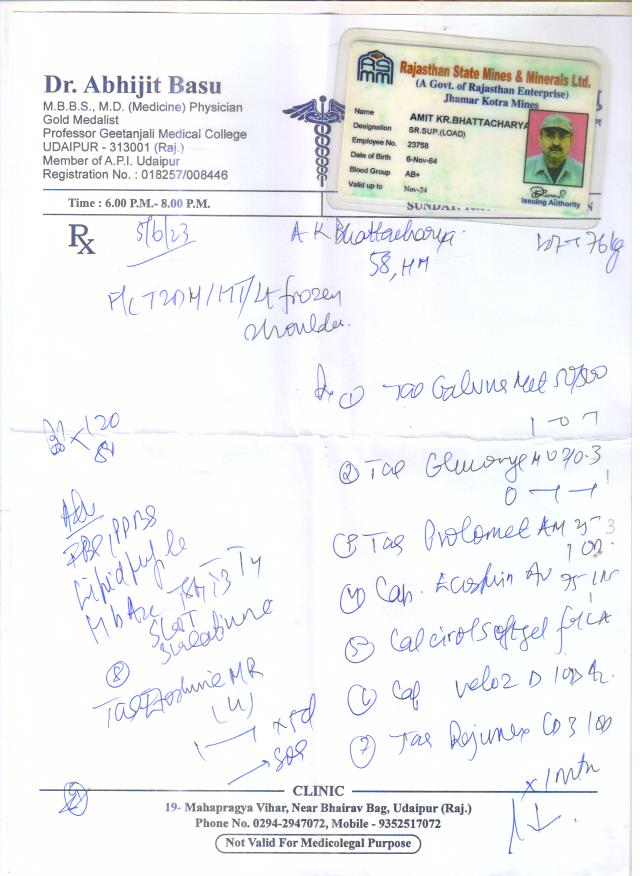 Dr. Abhijit Basu
M.B.B.S., M.D. (Medicine) Physician
Gold Medalist
Professor Geetanjali Medical College
UDAIPUR - 313001 (Raj.)
Member of A.P.I. Udaipur
Registration No. : 018257/008446
RSMM
Rajasthan State Mines & Minerals Ltd.
(A Govt. of Rajasthan Enterprise)
Jhamar Kotra Mines
Name AMIT KR.BHATTACHARYA
Designation SR.SUP.(LOAD)
Employee No. 23758
Date of Birth 6-Nov-64
Blood Group AB+
Valid up to Nov-24
Issuing Authority
Time : 6.00 P.M.- 8.00 P.M.
SUNDAY
Rx
5/6/23
A K Bhattacharya
58, HM
76 kg
T2DM / HT / Lt frozen
shoulder
① Tab Galvus Met 50/500
1 - 0 - 1
② Tab
0 - 1 - 1
120
Adv
FBS, PPBS
Lipid profile
HbA1c T3 T4
③ Tab Prolomet AM 25
④ Cap. Ecosprin AV 75
⑤ Calcirol softgel
⑥ Cap Veloz D
⑦ Tab Rejunex CD3 1 OD
x 1 Mth
⑧
Tab MR
(4)
x 5d
SOS
CLINIC
19- Mahapragya Vihar, Near Bhairav Bag, Udaipur (Raj.)
Phone No. 0294-2947072, Mobile - 9352517072
Not Valid For Medicolegal Purpose